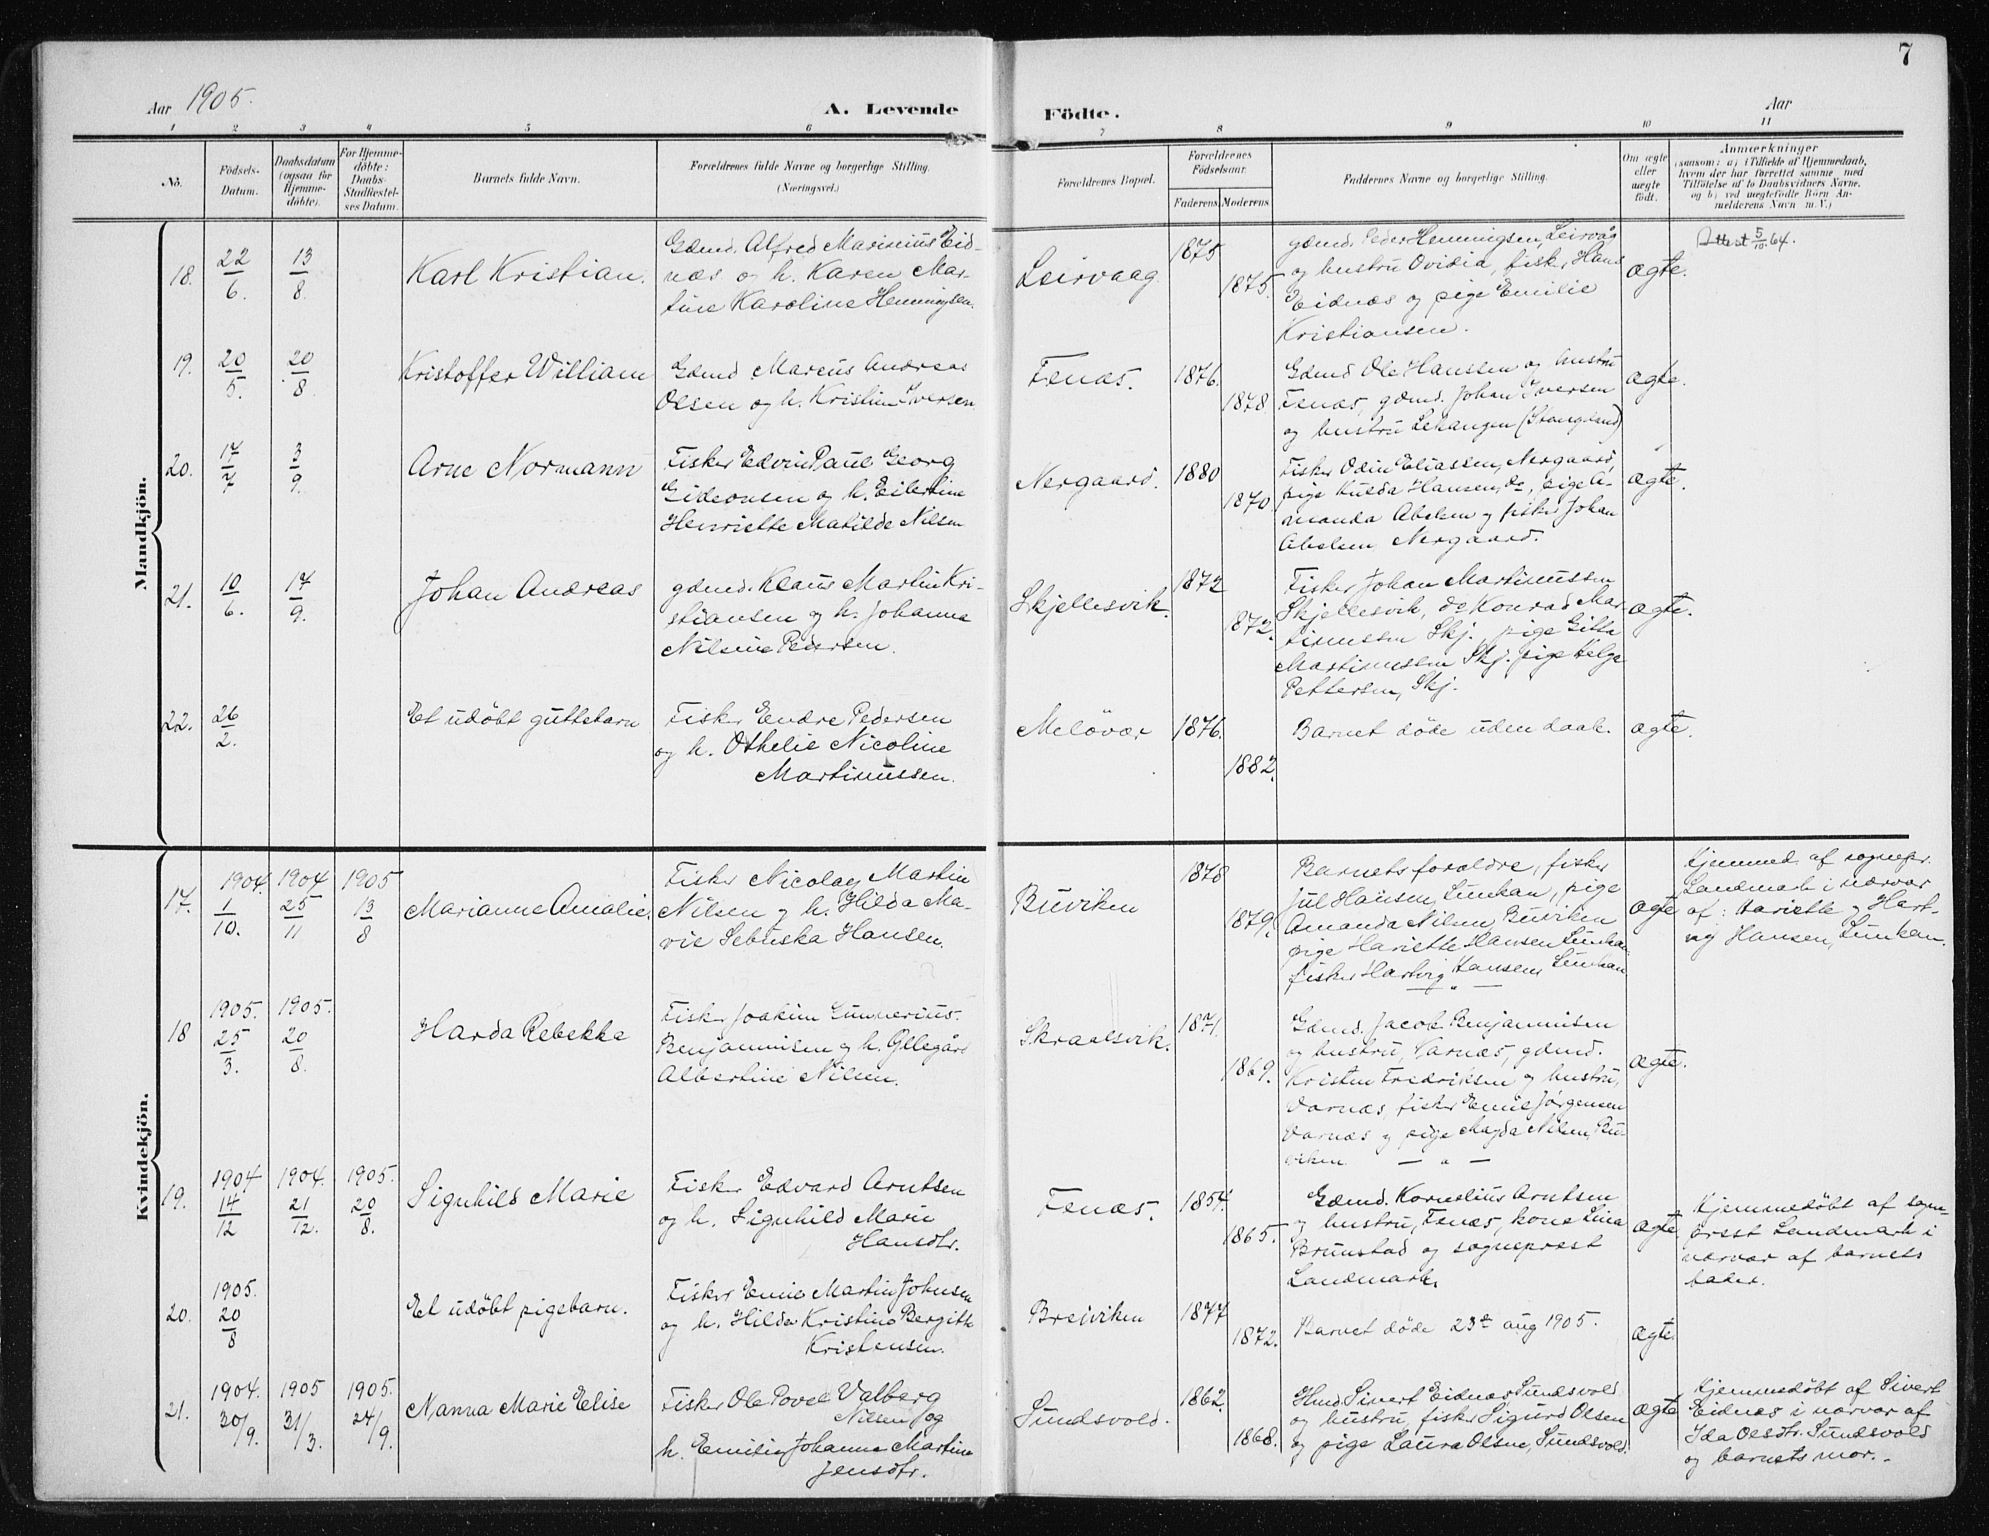 7
Aar 1905.
A. Levende
Födte.
Aar
1 2 3 4 5 6 7 8 9 10 11
No.
Födsels-
Datum.
Daabsdatum
(ogsaa for
Hjemme-
döbte).
For Hjemme-
döbte:
Daabs-
Stadfæstel-
ses Datum.
Barnets fulde Navn.
Forældrenes fulde Navne og borgerlige Stilling.
(Næringsvei.)
Forældrenes Bopæl.
Forældrenes
Födselsaar.
Faderens. Moderens.
Faddernes Navne og borgerlige Stilling.
Om ægte
eller
uægte
födt.
Anmærkninger
(saasom: a) i Tilfælde af Hjemmedaab,
hvem der har forrettet samme med
Tilföielse af to Daabsvidners Navne,
og b) ved uægtefödte Börn An-
melderens Navn m. V.)
Mandkjön.
18.
22/6.
13/8.
Karl Kristian.
Gdmd. Alfred Marinius Eid-
næs og h. Karen Mar-
tine Karoline Henningsen.
Leirvaag
1875
1875.
gdmd. Peder Henningsen, Leirvåg
og hustru Ovidia, fisker Hans
Eidnæs og pige Emilie
Kristiansen.
ægte.
Attest 5/10.64.
19.
20/5.
20/8.
Kristoffer William
Gdmd Marcus Andreas
Olsen og h. Kristine Iversen
Fenæs.
1876.
1878
Gdmd Ole Hanssen og hustru
Fenæs, gdmd. Johan Iversen
og hustru Lekangen (Stangeland)
ægte.
20.
17/7
3/9.
Arne Normann
Fisker Edvin Paul Georg
Gideonsen og h. Eilertine
Henriette Matilde Nilsen
Nergaard.
1880
1870
Fisker Odin Eliassen, Nergaard,
pige Hulda Hansen, do, pige A-
manda Abelsen og fisker Johan
Abelsen, Nergaard.
ægte.
21.
10/6.
17/9.
Johan Andreas
gdmd. Klaus Martin Kri-
stiansen og h. Johanna
Nilsine Pedersen.
Skjellesvik.
1872
1872.
Fisker Johan Martinussen
Skjellesvik, do Konrad Mar-
tinussen Skj., pige Gitta
Martinussen Skj. pige Helga
Pettersen, Skj.
ægte.
22.
26/2.
Et udöbt guttebarn
Fisker Endre Pedersen
og h. Othelie Nicoline
Martinussen.
Melövær
1876.
1882.
Barnet döde uden daab.
ægte.
Kvindekjön.
17.
1904. 1/10.
1904 25/11
1905 13/8
Marianne Amalie.
Fisker Nicolay Martin
Nilsen og h. Hilda Ma-
rie Sebuska Hansen.
Buviken
1878
1879.
Barnets forældre, fisker
Jul Hansen, Lunkan, pige
Amanda Nilsen Buviken
pige Hariette Hansen Lunkan
fisker Hartvig Hansen, Lunkan
ægte
Hjemmed. af sognepr.
Landmark i nærvær
af: Hariette og Hart-
vig Hansen, Lunkan.
18
1905. 25/3.
1905. 20/8.
Harda Rebekka
Fisker Joakim Gunnerius
Benjaminsen og h. Ellegård
Albertine Nilsen.
Skraalsvik.
1871.
1869.
Gdmd. Jacob Benjaminsen
og hustru, Varnæs, gdmd.
Kristen Fredriksen og hustru,
Varnæs, fisker Emil Jørgensen
Varnæs og pige Magda Nilsen, Bu-
viken — „ —
ægte.
19.
1904 14/12
1904. 21/12.
1905. 20/8.
Signhild Marie
Fisker Edvard Arntsen
og h. Signhild Marie
Hansdtr.
Fenæs.
1854.
1865.
Gdmd. Kornelius Arntsen
og hustru, Fenæs, kone Lina
Brunstad og sogneprest
Landmark.
ægte
Hjemmedöbt af sogne-
prest Landmark i
nærvær af barnets
fader.
20.
1905. 20/8
Et udöbt pigebarn.
Fisker Emil Martin Johnsen
og h. Hilda Kristine Bergithe
Kristensen.
Breiviken
1877
1872.
Barnet döde 23de aug 1905.
ægte.
21.
1904. 30/9.
1905 31/3.
1905. 24/9.
Nanna Marie Elise
Fisker Ole Povel Valberg
Nilsen og
h. Emilie Johanna Martine
Jensdtr.
Sundsvold.
1862.
1868.
Hmd Sivert Eidnæs Sundsvold
og hustru, fisker Sigurd Olsen
og pige Laura Olsen, Sundsvold.
ægte
Hjemmedöbt af Sivert
Eidnæs i nærvær af
Ida Olsdtr. Sundsvold
og barnets mor.